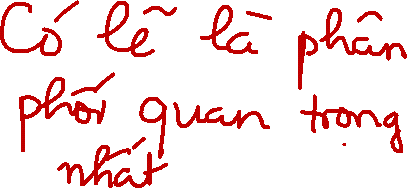 Có lẽ là phân
phối quan trọng
nhất